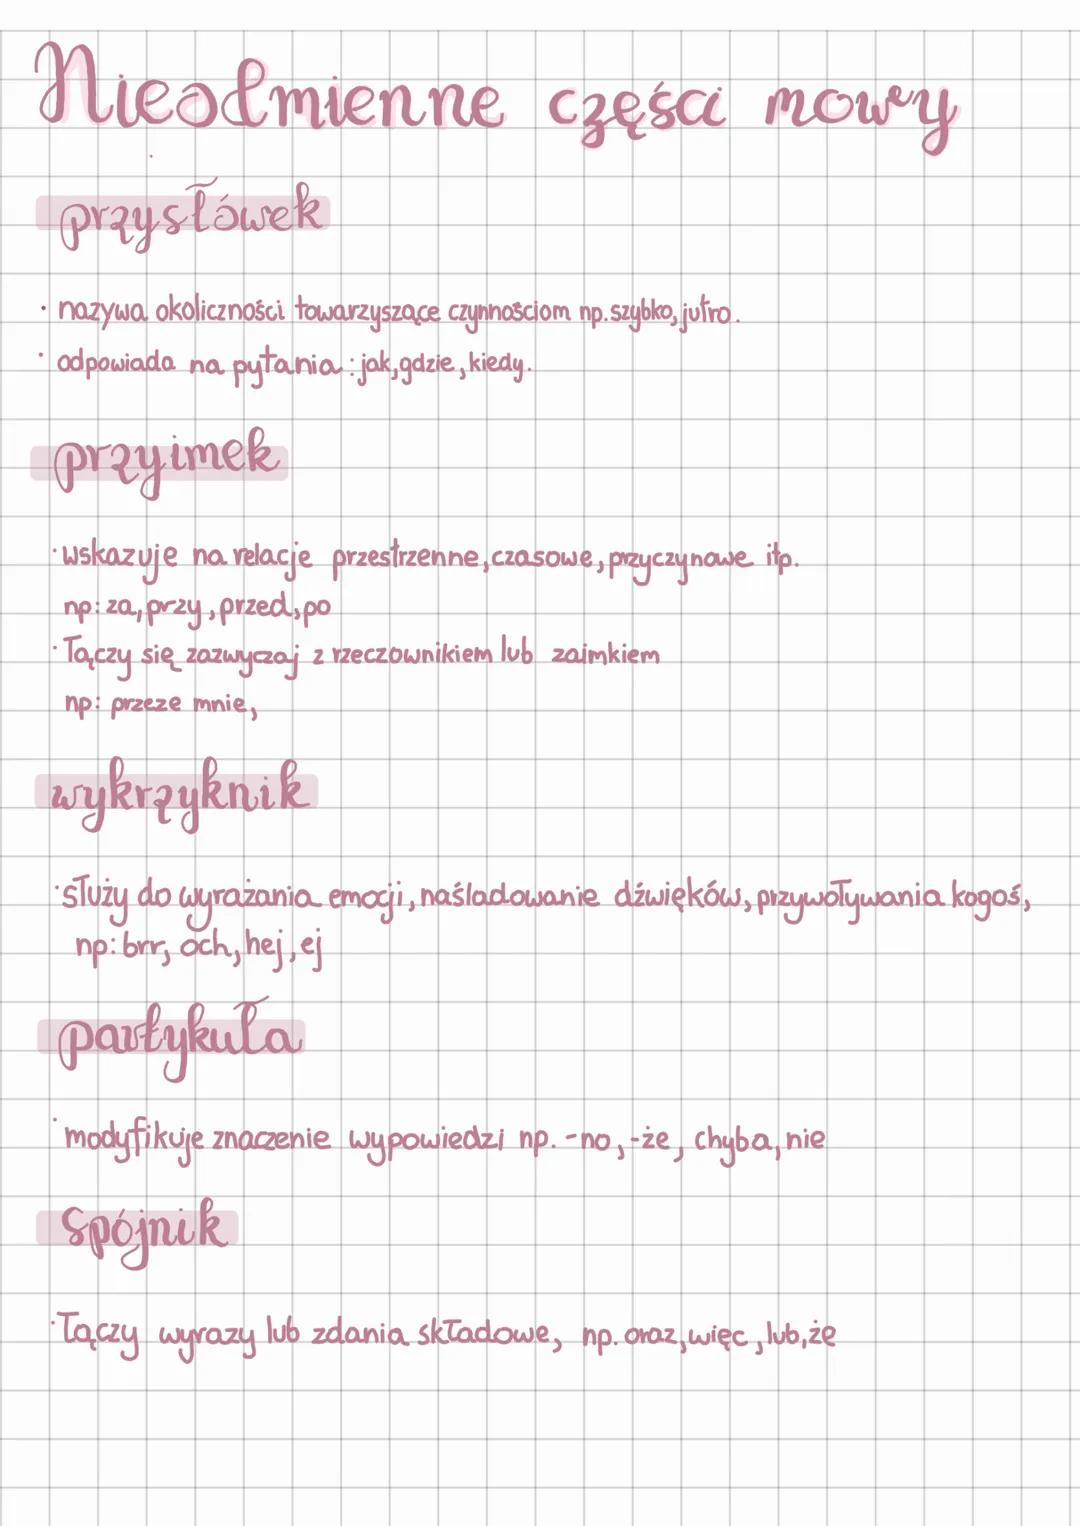 Nieodmienne części mowy
przysłówek
· nazywa okoliczności towarzyszące czynnościom np. szybko, jutro.
· odpowiada na pytania : jak, gdzie, kiedy.
przyimek
· wskazuje na relacje przestrzenne, czasowe, przyczynowe itp.
np: za, przy, przed, po
· Łączy się zazwyczaj z rzeczownikiem lub zaimkiem
np: przeze mnie,
wykrzyknik
· służy do wyrażania emocji, naśladowanie dźwięków, przywoływania kogoś,
np: brr, och, hej, ej
partykuła
· modyfikuje znaczenie wypowiedzi np. -no, -że, chyba, nie
spójnik
· Łączy wyrazy lub zdania składowe, np. oraz, więc, lub, że